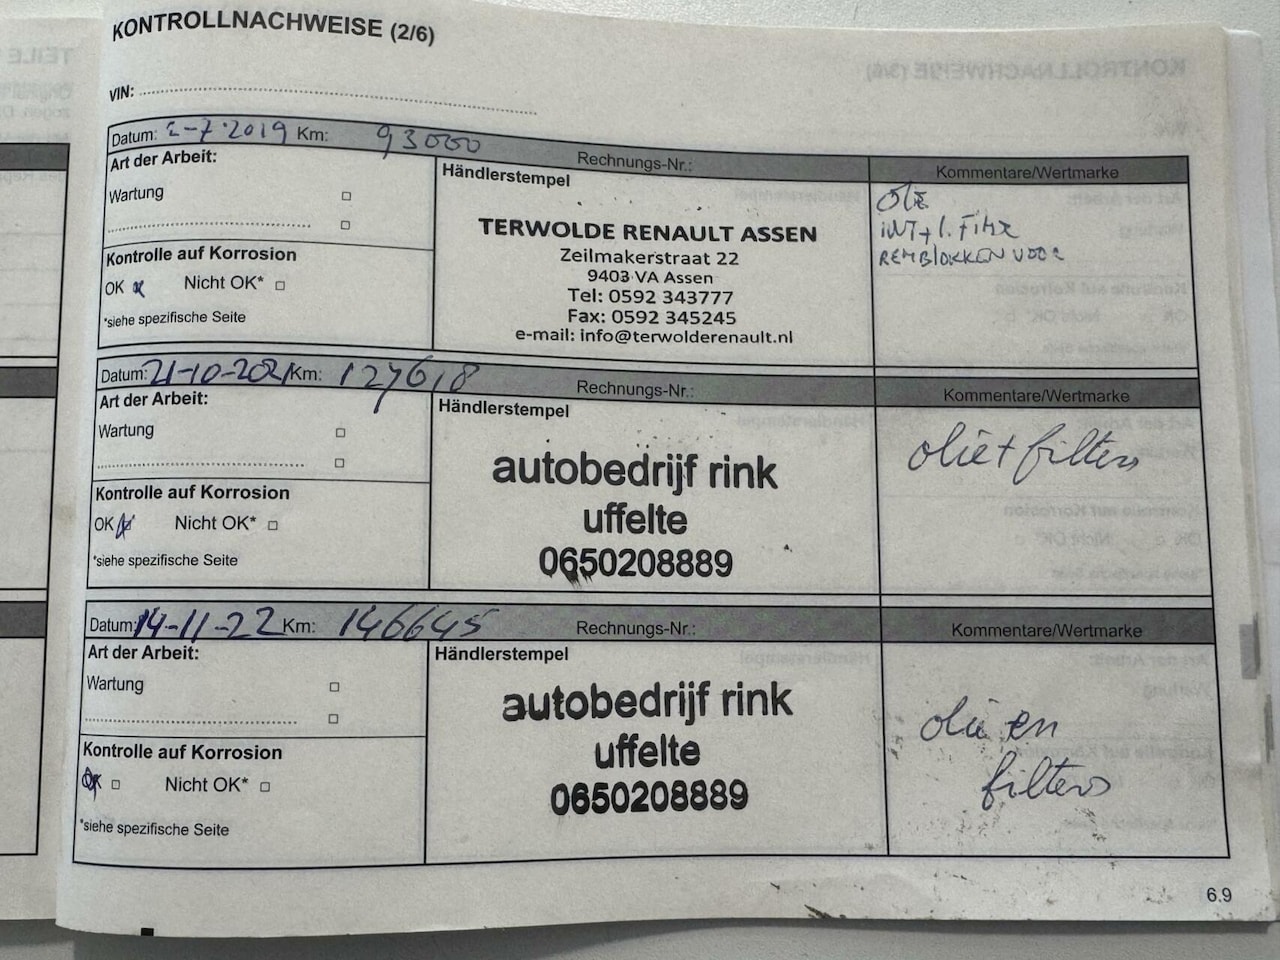 KONTROLLNACHWEISE (2/6)
VIN:
Datum: 2-7-2019 Km: 93000 Rechnungs-Nr.:
Kommentare/Wertmarke
Art der Arbeit:
Wartung
Kontrolle auf Korrosion
OK Nicht OK*
*siehe spezifische Seite
Händlerstempel
TERWOLDE RENAULT ASSEN
Zeilmakerstraat 22
9403 VA Assen
Tel: 0592 343777
Fax: 0592 345245
e-mail: info@terwolderenault.nl
OLIE
INT + 1. FILTR
REMBLOKKEN VOOR
Datum: 21-10-2021 Km: 127618 Rechnungs-Nr.:
Kommentare/Wertmarke
Art der Arbeit:
Wartung
Kontrolle auf Korrosion
OK Nicht OK*
*siehe spezifische Seite
Händlerstempel
autobedrijf rink
uffelte
0650208889
olie + filters
Datum: 14-11-22 Km: 146645 Rechnungs-Nr.:
Kommentare/Wertmarke
Art der Arbeit:
Wartung
Kontrolle auf Korrosion
OK Nicht OK*
*siehe spezifische Seite
Händlerstempel
autobedrijf rink
uffelte
0650208889
olie en
filters
6.9